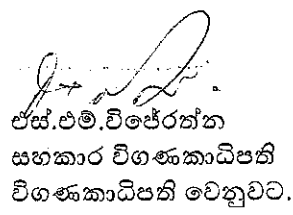 ඒස්.එම්.විජේරත්න
සහකාර විගණකාධිපති
විගණකාධිපති වෙනුවට.